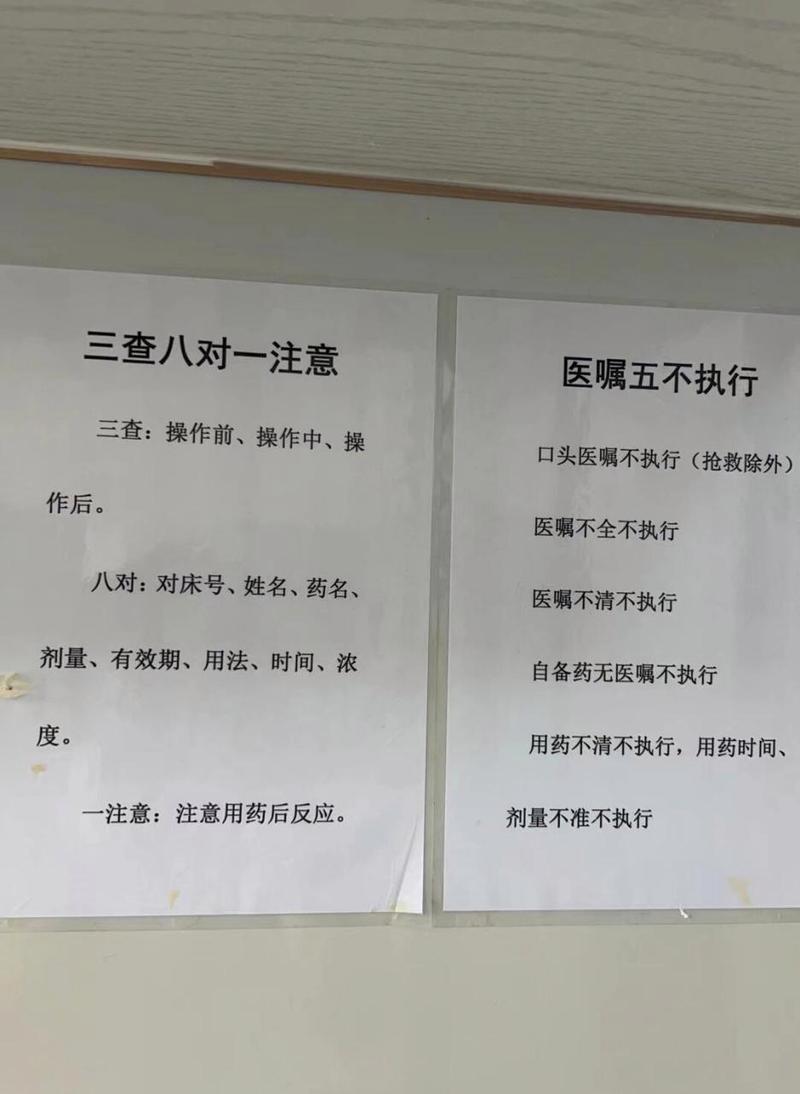 三查八对一注意
三查：操作前、操作中、操
作后。
八对：对床号、姓名、药名、
剂量、有效期、用法、时间、浓
度。
一注意：注意用药后反应。
医嘱五不执行
口头医嘱不执行（抢救除外）
医嘱不全不执行
医嘱不清不执行
自备药无医嘱不执行
用药不清不执行，用药时间、
剂量不准不执行